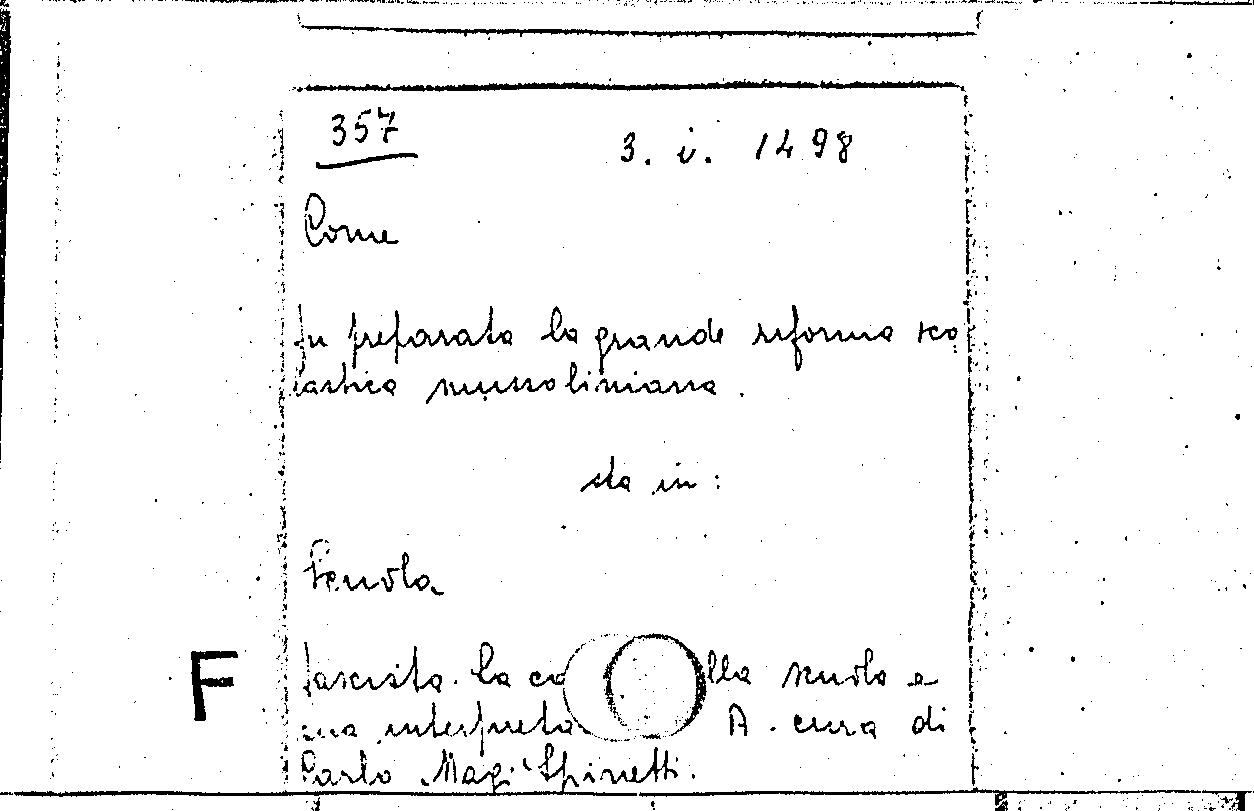 357 3. i. 1498
Come
fu preparata la grande riforma sco
lastica mussoliniana.
sta in:
Scuola
F fascista. La ca lla scuola e
sua interpreta A cura di
Carlo Magi-Spinetti.